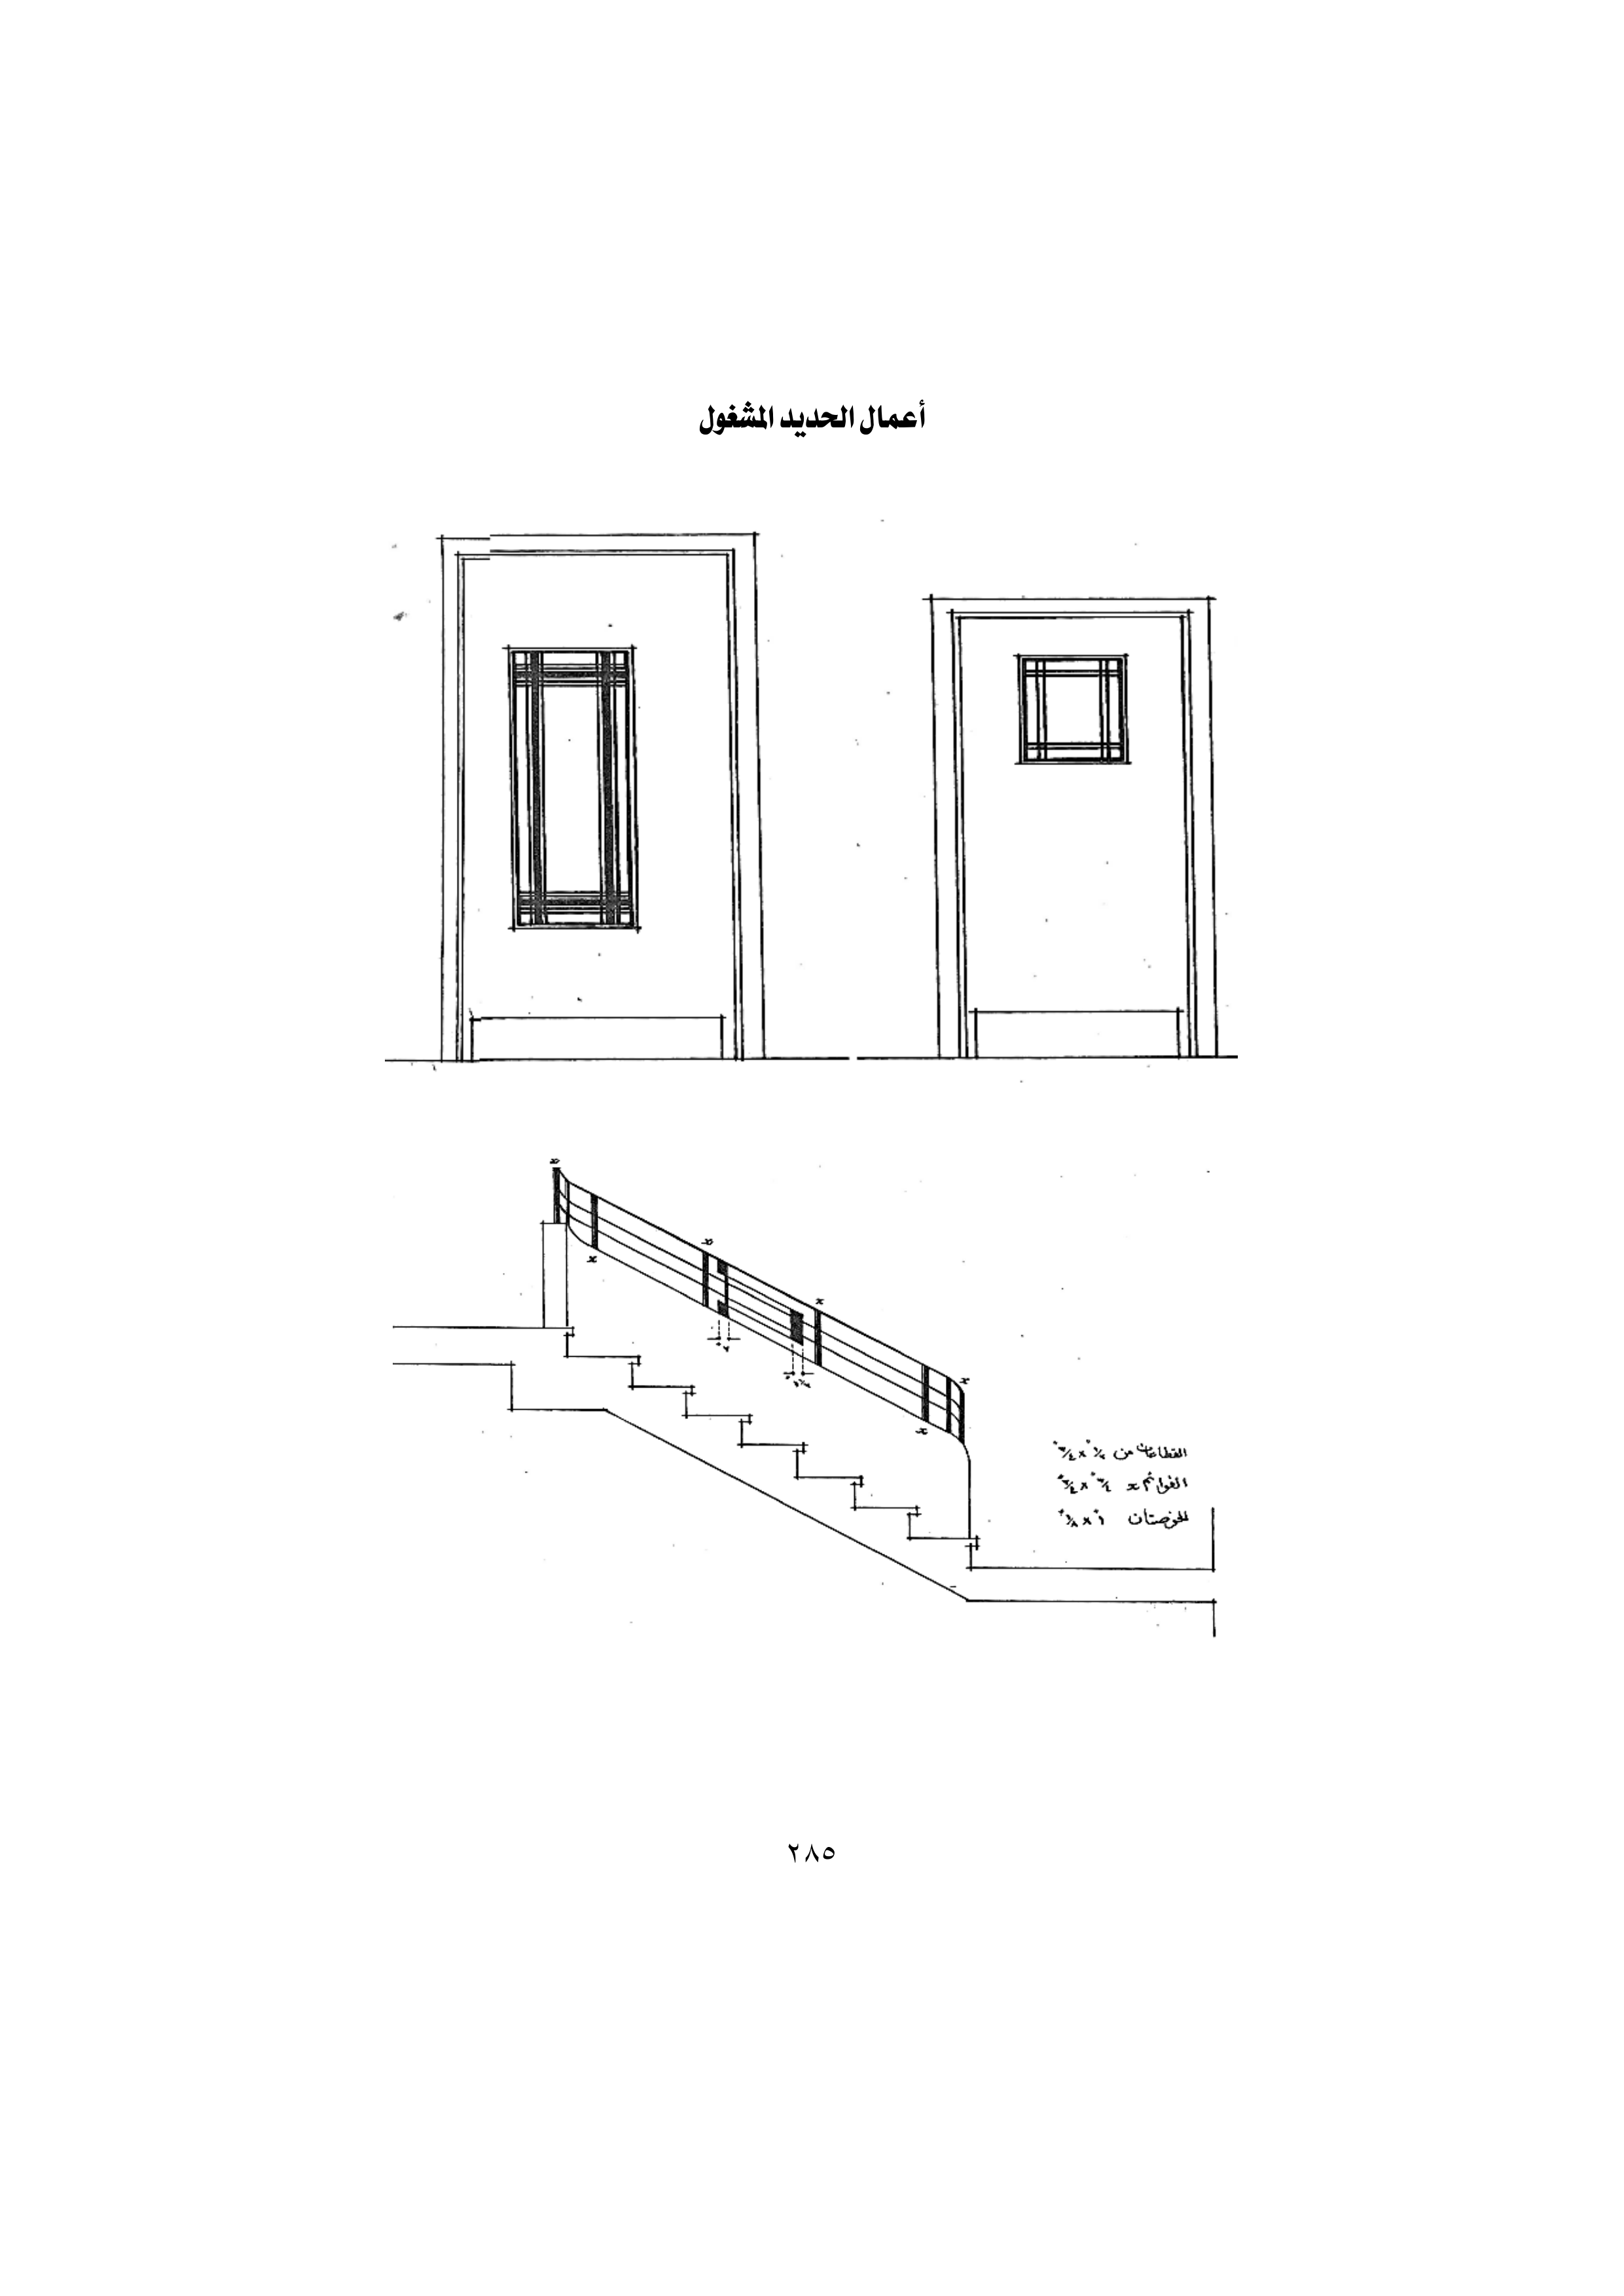 أعمال الحديد المشغول
x
x
x
x
x
x
٢"
القطاعات من ١/٢" x ٣/٤"
القوائم x ٣/٤" x ٣/٤"
الخوصتان ١" x ١/٨"
٢٨٥